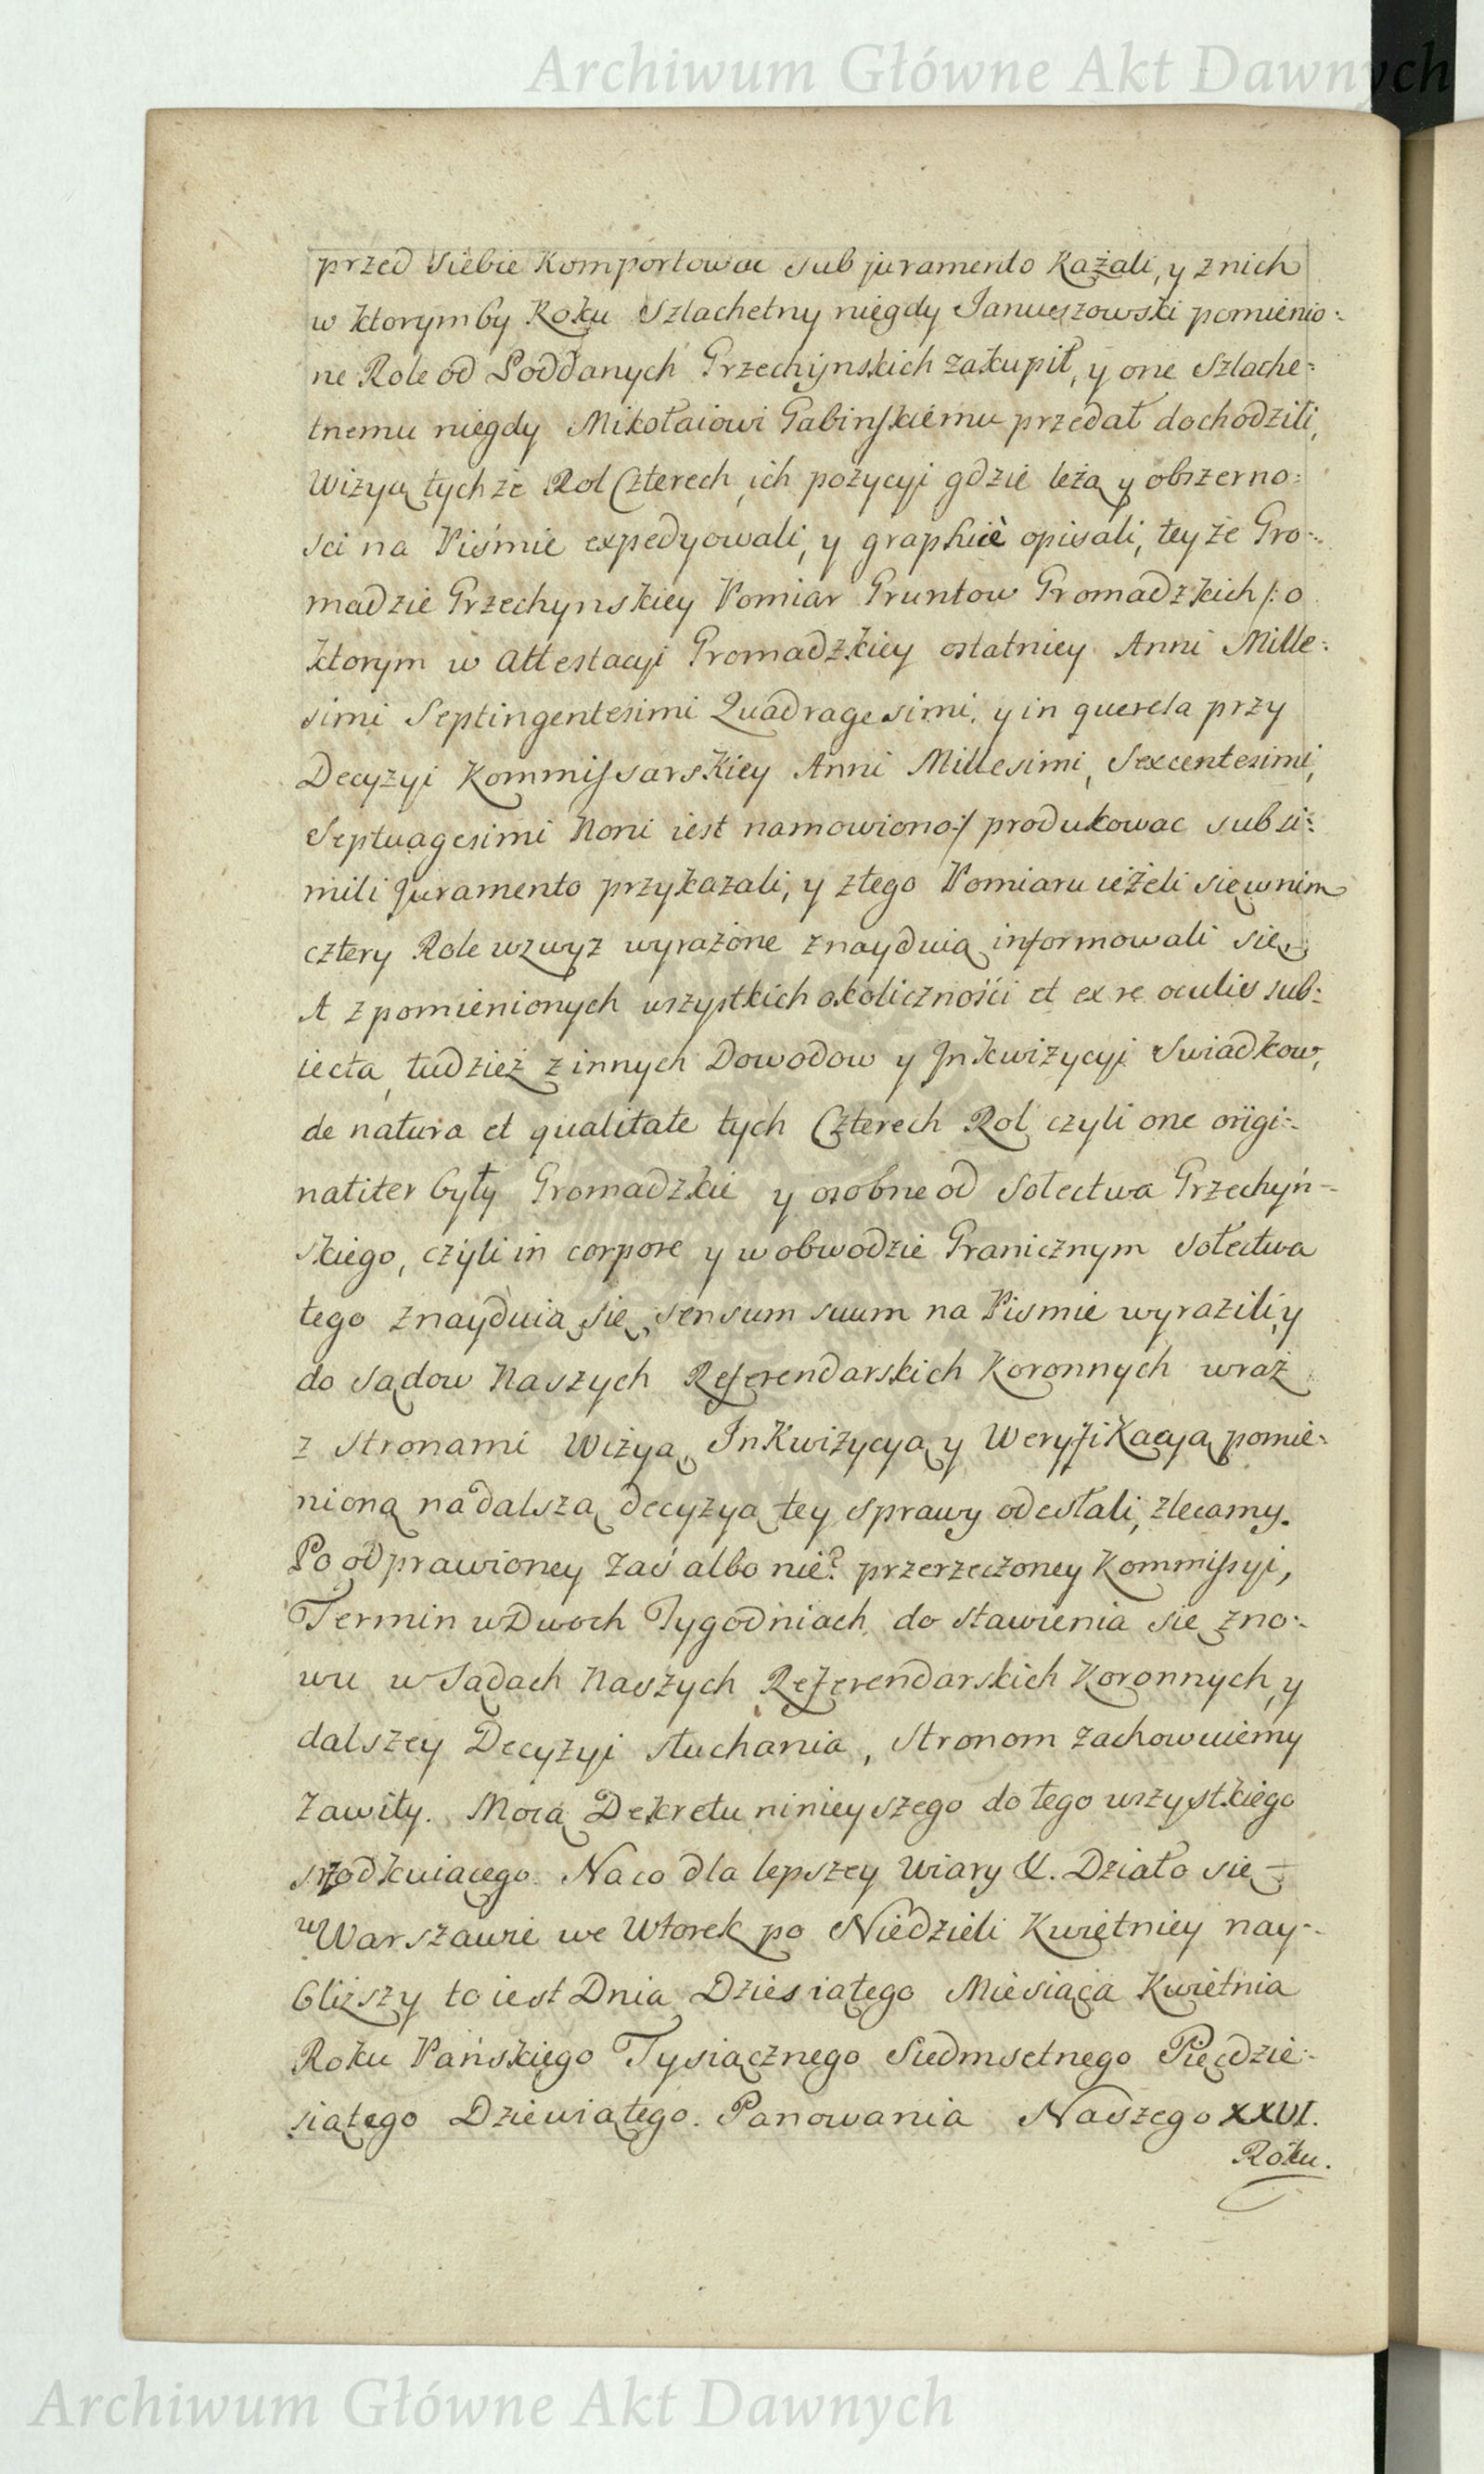 Archiwum Główne Akt Dawnych
przed Siebie Komportowac sub juramento Każali, y z nich
w ktorymby Roku Szlachetny niegdy Januszowski pomienio:
ne Role od Poddanych Grzechynskich zakupił, y one Szlache:
tnemu niegdy Mikołaiowi Gabinskiemu przedał dochodzili,
Wizyą tychże Rol Czterech, ich pozycyi gdzie leżą y obszerno:
sci na Piśmie expedyowali, y graphicè opisali, teyże Gro:
madzie Grzechynskiey Pomiar Gruntow Gromadzkich /: o
ktorym w Attestacyi Gromadzkiey ostatniey Anni Mille:
simi Septingentesimi Quadragesimi, y in querela przy
Decyzyi Kommissarskiey Anni Millesimi, Sexcentesimi,
Septuagesimi Noni iest namowiono :/ produkowac sub si:
mili Juramento przykazali, y z tego Pomiaru ieżeli się w nim
cztery Role wzwyz wyrażone znayduią informowali się,
A z pomienionych wszystkich okoliczności et ex re oculis sub:
iecta, tudzież z innych Dowodow y Inkwizycyi Swiadkow,
de natura et qualitate tych Czterech Rol czyli one origi:
naliter były Gromadzkie y osobne od Sołectwa Grzechyń-
skiego, czyli in corpore y w obwodzie Granicznym Sołectwa
tego znayduią się, sensum suum na Pismie wyrazili, y
do Sądow Naszych Referendarskich Koronnych wraz
z Stronami Wizyą, Inkwizycyą y Weryfikacyą pomie:
nioną na dalszą decyzyą tey sprawy odesłali, zlecamy.
Po odprawioney zaś albo nie? przerzeczoney Kommissyi,
Termin w Dwoch Tygodniach do stawienia się zno:
wu w Sądach Naszych Referendarskich Koronnych, y
dalszey Decyzyi słuchania, Stronom zachowuiemy
Zawity. Mocą Dekretu ninieyszego do tego wszystkiego
srzodkuiącego. Na co dla lepszey Wiary &. Działo się
w Warszawie we Wtorek po Niedzieli Kwietniey nay-
bliższy to iest Dnia Dziesiątego Miesiąca Kwietnia
Roku Pańskiego Tysiącznego Siedmsetnego Pięcdzie:
siątego Dziewiątego. Panowania Naszego XXVI.
Roku.
Archiwum Główne Akt Dawnych